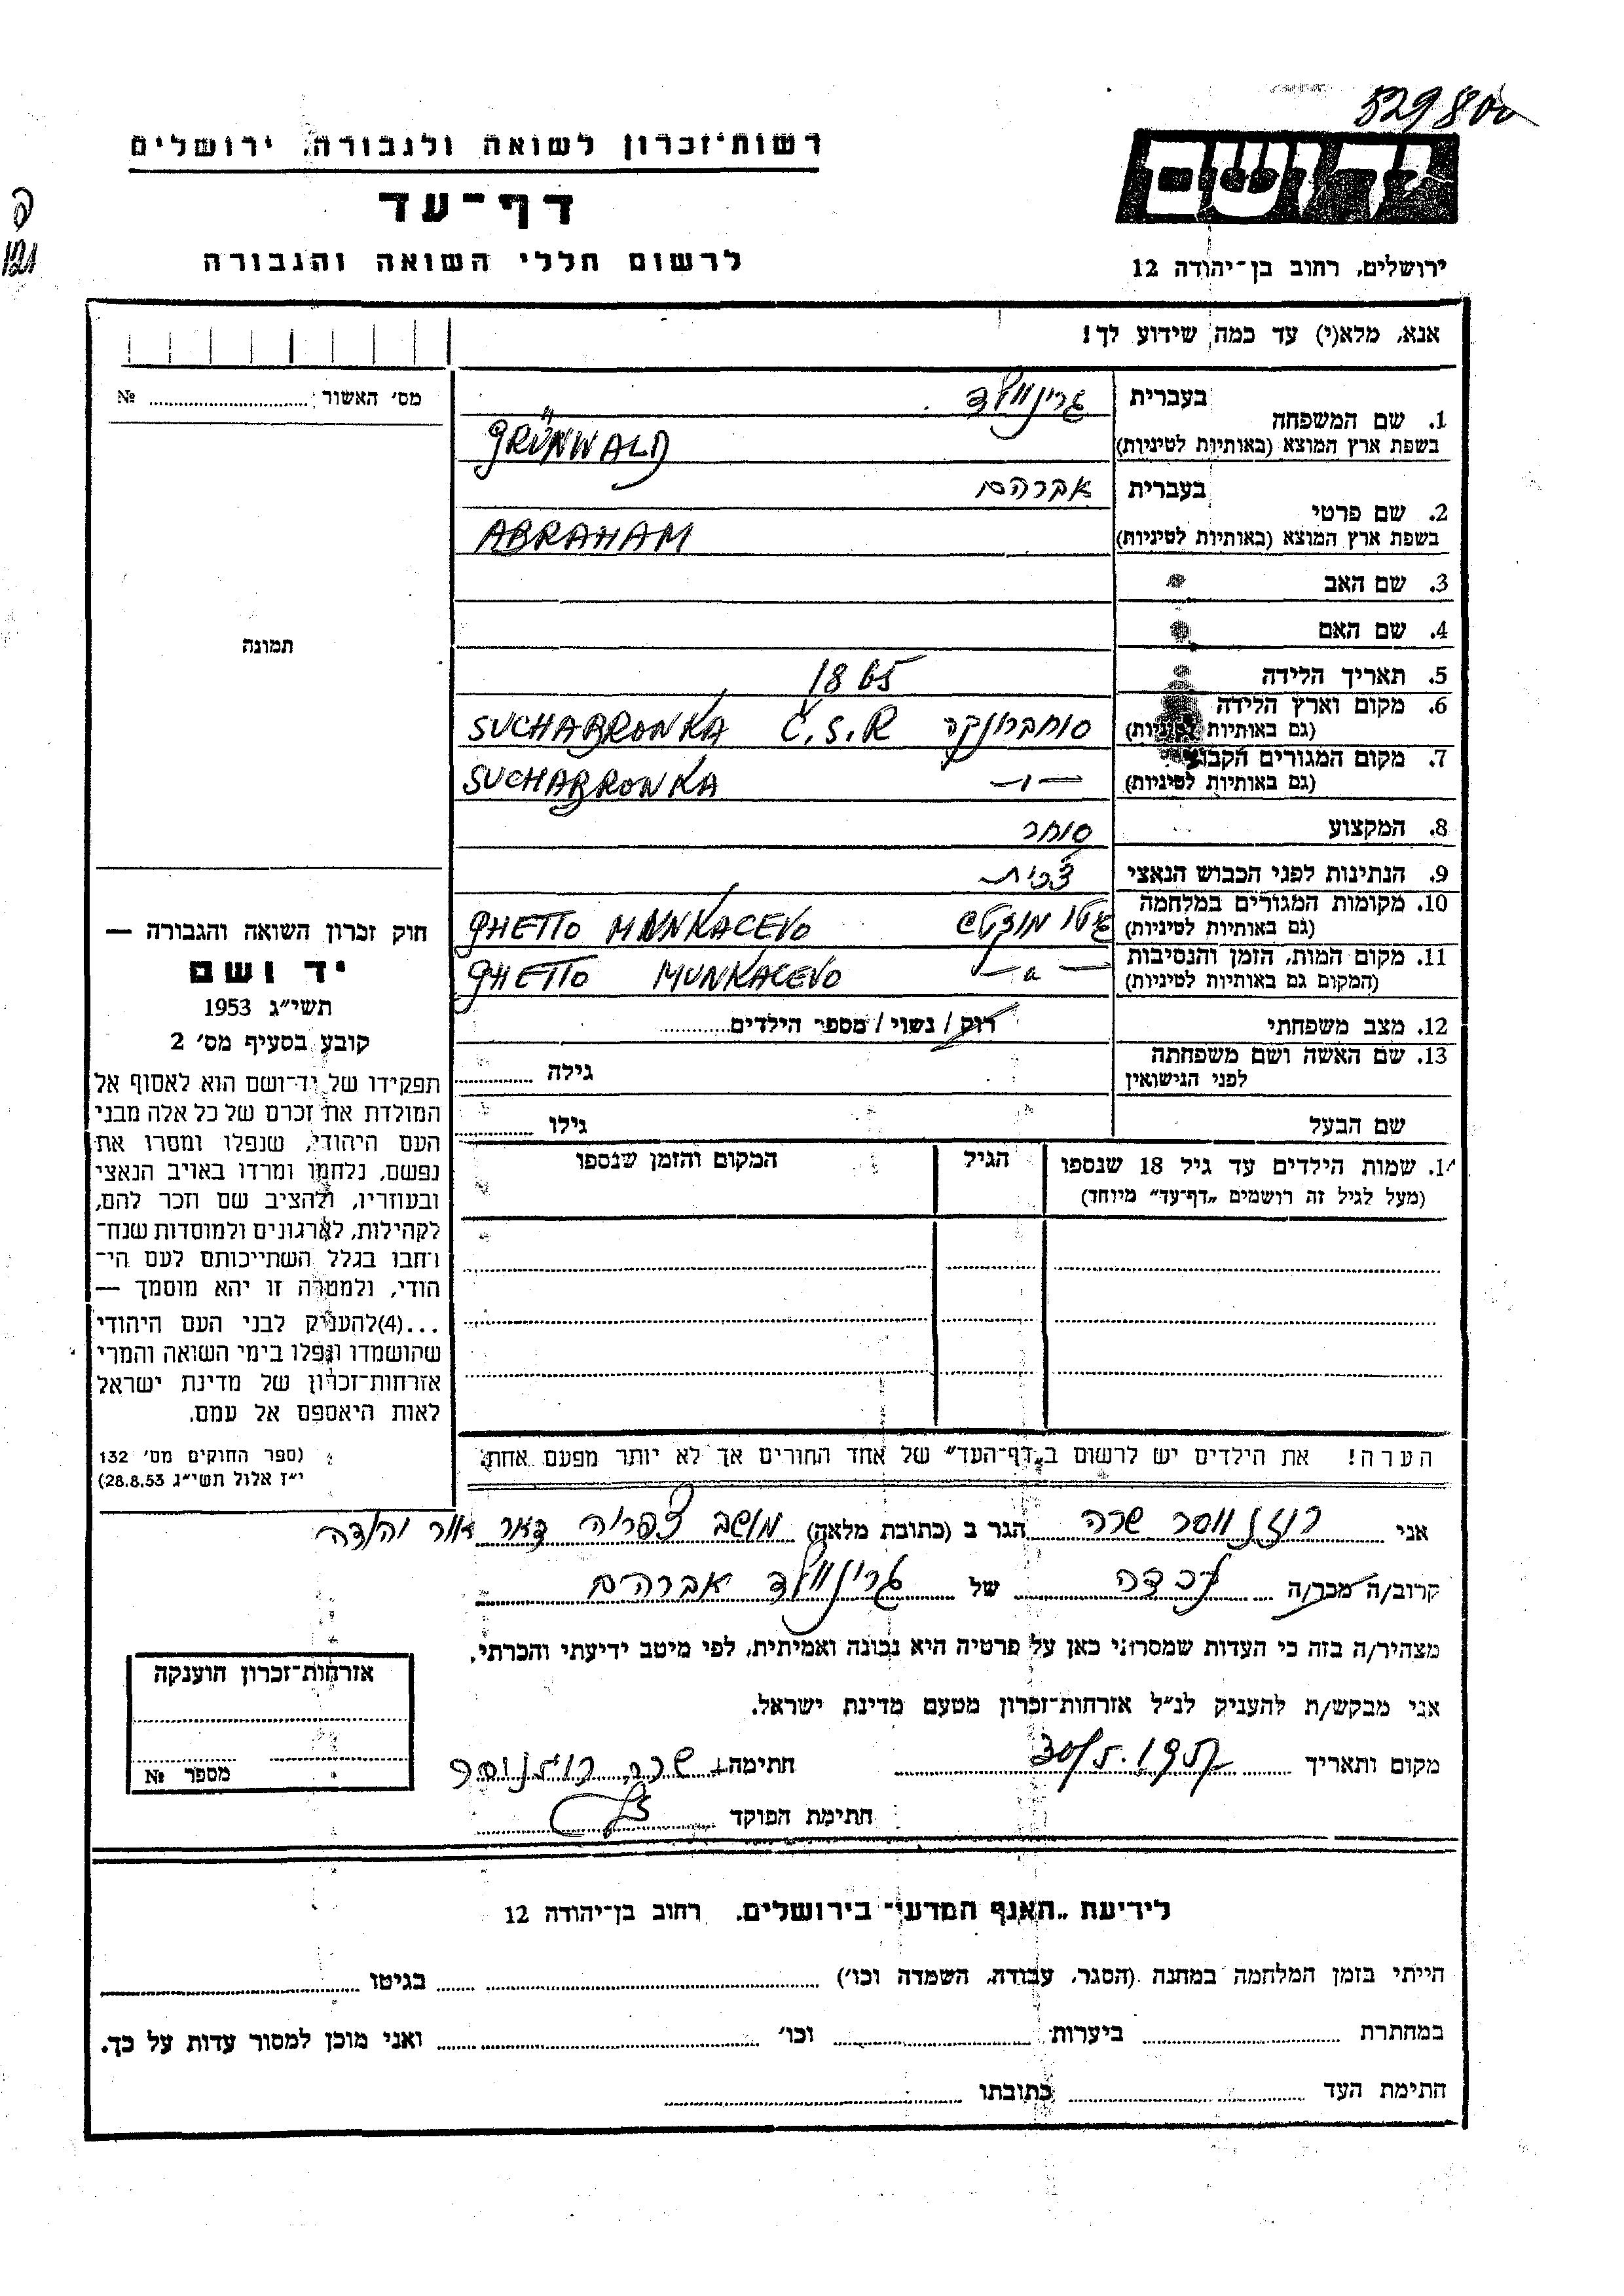 529800
רשות־זכרון לשואה ולגבורה, ירושלים
דף־עד
לרשום חללי השואה והגבורה
יד ושם
ירושלים, רחוב בן־יהודה 12
אנא, מלא(י) עד כמה שידוע לך!
מס׳ האשור № 
1. שם המשפחה בעברית גרינוולד
בשפת ארץ המוצא (באותיות לטיניות) GRÜNWALD
2. שם פרטי בעברית אברהם
בשפת ארץ המוצא (באותיות לטיניות) ABRAHAM
3. שם האב
4. שם האם
תמונה
5. תאריך הלידה 1865
6. מקום וארץ הלידה (גם באותיות לטיניות) סוחברונקה Č.S.R SUCHABRONKA
7. מקום המגורים הקבוע (גם באותיות לטיניות) —״— SUCHABRONKA
8. המקצוע סוחר
9. הנתינות לפני הכבוש הנאצי צ׳כית
10. מקומות המגורים במלחמה (גם באותיות לטיניות) גיטו GHETTO MUNKACEVO
11. מקום המות, הזמן והנסיבות (המקום גם באותיות לטיניות) —״— GHETTO MUNKACEVO
12. מצב משפחתי רוק / נשוי / מספר הילדים
13. שם האשה ושם משפחתה לפני הנישואין גילה
שם הבעל גילו
14. שמות הילדים עד גיל 18 שנספו הגיל המקום והזמן שנספו
(מעל לגיל זה רושמים „דף־עד״ מיוחד)
חוק זכרון השואה והגבורה —
יד ושם
תשי״ג 1953
קובע בסעיף מס׳ 2
תפקידו של יד־ושם הוא לאסוף אל
המולדת את זכרם של כל אלה מבני
העם היהודי, שנפלו ומסרו את
נפשם, נלחמו ומרדו באויב הנאצי
ובעוזריו, ולהציב שם וזכר להם,
לקהילות, לארגונים ולמוסדות שנח־
רחבו בגלל השתייכותם לעם הי־
הודי, ולמטרה זו יהא מוסמך —
...(4)להעניק לבני העם היהודי
שהושמדו ונפלו בימי השואה והמרי
אזרחות־זכרון של מדינת ישראל
לאות היאספם אל עמם.
(ספר החוקים מס׳ 132
י״ז אלול תשי״ג 28.8.53)
הערה! את הילדים יש לרשום ב„דף־העד״ של אחד ההורים אך לא יותר מפעם אחת.
אני רוזנווסר שרה הגר ב (כתובת מלאה) מושב צפריה דאר
קרוב/ה מכר/ה נכדה של גרינוולד אברהם
מצהיר/ה בזה כי העדות שמסרתי כאן על פרטיה היא נכונה ואמיתית, לפי מיטב ידיעתי והכרתי.
אני מבקש/ת להעניק לנ״ל אזרחות־זכרון מטעם מדינת ישראל.
מקום ותאריך 30/5.1957 חתימה שרה רוזנוסר
חתימת הפוקד
אזרחות־זכרון הוענקה
מספר №
לידיעת „האגף המדעי״ בירושלים, רחוב בן־יהודה 12
הייתי בזמן המלחמה במחנה (הסגר, עבודה, השמדה וכו׳) בגיטו
במחתרת ביערות וכו׳ ואני מוכן למסור עדות על כך.
חתימת העד כתובתו